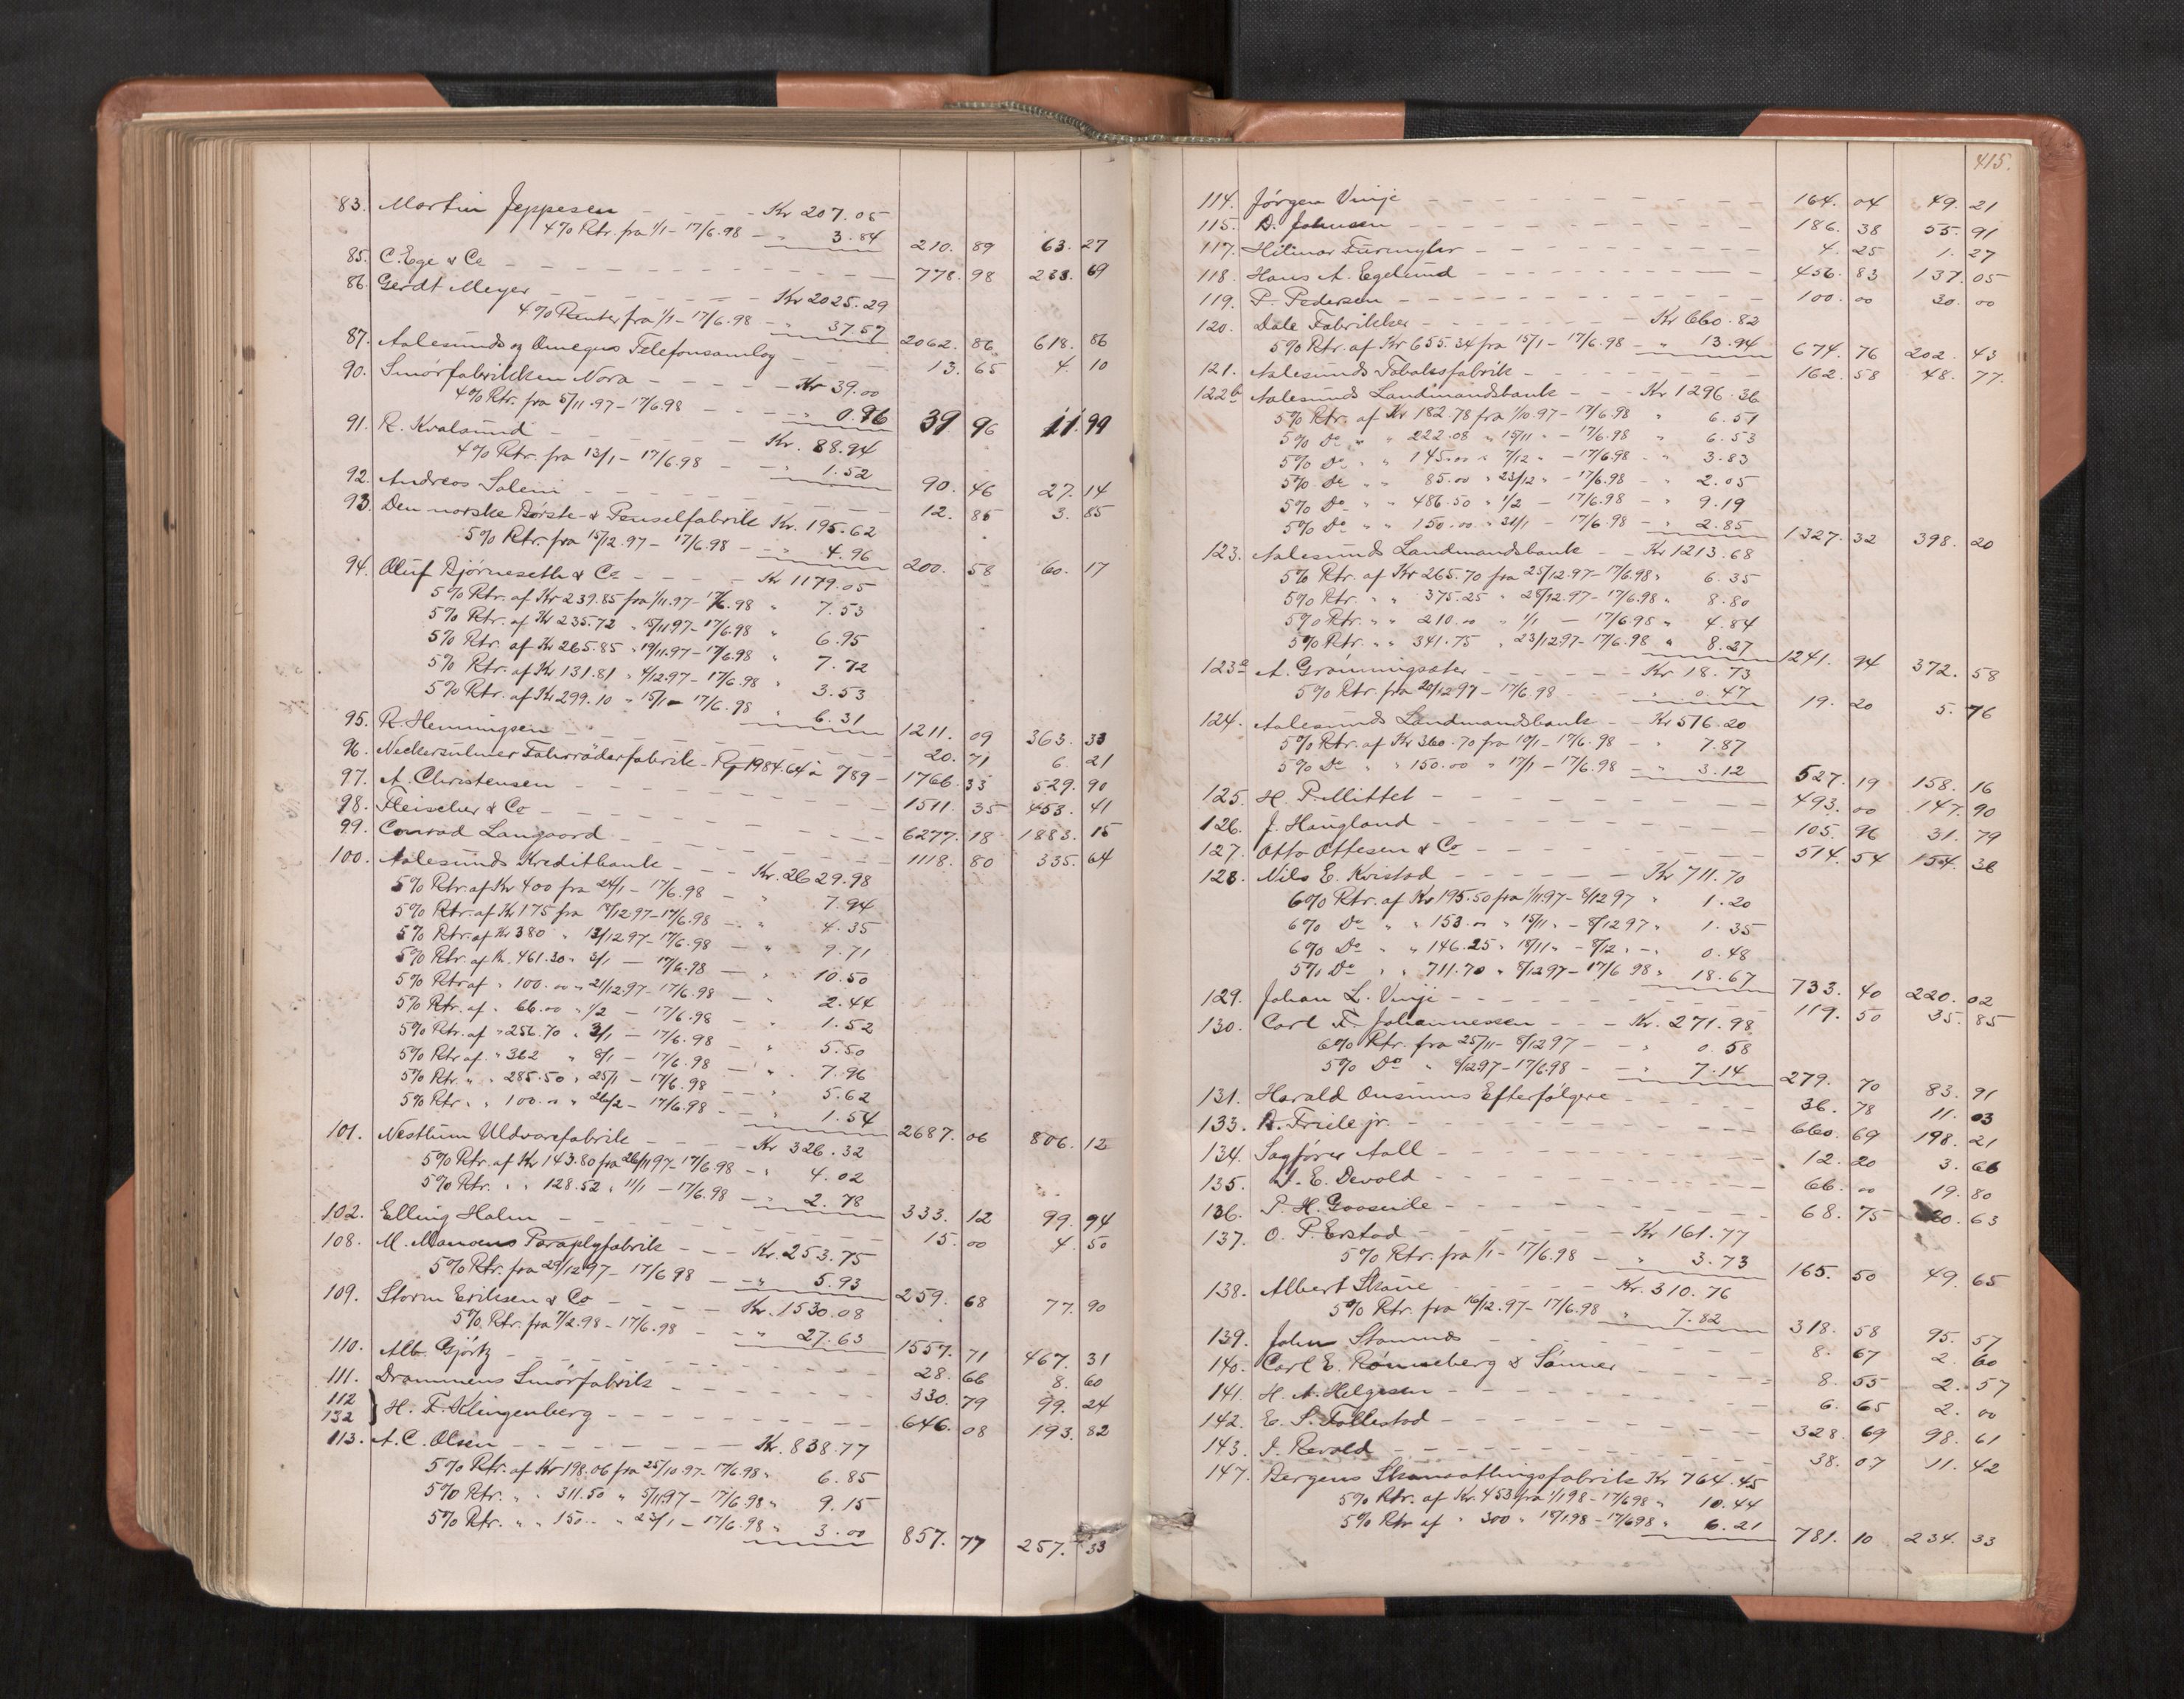 83. Martin Jeppesen - - - - Kr 207.05
4% Rtr. fra 1/1 - 17/6.98 - " 3.84 210.89 63.27
85. C. Ege & Co - - - - 778.98 233.69
86. Gerdt Meyer - - - - Kr 2025.29
4% Renter fra 1/1 - 17/6.98 - " 37.57 2062.86 618.86
87. Aalesunds og Omegns Telefonsamlag - - 13.65 4.10
90. Smörfabrikken Nora - - - - Kr 39.00
4% Rtr. fra 5/11.97 - 17/6.98 - - - " 0.96 39 96 11.99
91. R. Kvalsund - - - - Kr. 88.94
4% Rtr. fra 13/1 - 17/6.98 - - " 1.52 90.46 27.14
92. Andreas Solem - - - - 12.85 3.85
93. Den norske Börste- & Penselfabrik Kr. 195.62
5% Rtr. fra 15/12.97 - 17/6.98 - - " 4.96 200.58 60.17
94. Oluf Björneseth & Co - - - - Kr 1179.05
5% Rtr. af Kr 239.85 fra 1/11.97 - 17/6.98 " 7.53
5% Rtr. af Kr 235.72 " 15/11 97 - 17/6.98 " 6.95
5% Rtr. af Kr 265.85 " 19/11.97 - 17/6.98 " 7.72
5% Rtr. af Kr 131.81 " 4/12 97 - 17/6.98 " 3.53
5% Rtr. af Kr 299.10 " 15/1 - 17/6.98 " 6.31 1211.09 363.33
95. R. Henningsen - - - - 20.71 6.21
96. Neckersulmer Fahrräderfabrik - Rm 1984.64 à 789 - 1766.33 529.90
97. A. Christensen - - - - 1511.35 453.41
98. Fleischer & Co - - - - 6277.18 1883.15
99. Conrad Langaard - - - - 1118.80 335.64
100. Aalesunds Kreditbank - - - Kr. 2629.98
5% Rtr. af Kr 400 fra 24/1 - 17/6.98 - " 7.94
5% Rtr. af Kr 175 fra 19/12 97 - 17/6.98 - " 4.35
5% Rtr. af Kr 380 " 13/12 97 - 17/6.98 - " 9.71
5% Rtr. af Kr. 461.30 " 3/1 - 17/6.98 - " 10.50
5% Rtr af " 100.00 " 21/12.97 - 17/6.98 - " 2.44
5% Rtr. af " 66.00 " 1/2 - 17/6.98 - " 1.52
5% Rtr. af " 256.70 " 3/1 - 17/6.98 - " 5.50
5% Rtr af " 362 " 8/1 - 17/6.98 - " 7.96
5% Rtr. " " 285.50 " 25/1 - 17/6.98 - " 5.62
5% Rtr. " " 100.00 " 26/2 - 17/6.98 - " 1.54 2687.06 806.12
101. Nesttun Uldvarefabrik - - - - Kr 326.32
5% Rtr. af Kr 143.80 fra 26/11 97 - 17/6.98 - " 4.02
5% Rtr. " " 128.52 " 11/1 - 17/6.98 - " 2.78 333.12 99.94
102. Elling Holm - - - - 15.00 4.50
108. M. Monsens Paraplyfabrik - - - Kr. 253.75
5% Rtr. fra 29/12 97 - 17/6 98 - - " 5.93 259.68 77.90
109. Storm Eriksen & Co - - - - Kr. 1530.08
5% Rtr. fra 7/2.98 - 17/6.98 - - " 27.63 1557.71 467.31
110. Alb. Gjörtz - - - - 28.66 8.60
111. Drammens Smörfabrik - - - - 330.79 99.24
112
132 } H. F. Klingenberg - - - - 646.08 193.82
113. A. C. Olsen - - - - Kr. 838.77
5% Rtr. af Kr 198.06 fra 25/10.97 - 17/6.98 " 6.85
5% Rtr. " " 311.50 " 5/11 97 - 17/6.98 " 9.15
5% Rtr. " " 150.- " 23/1 - 17/6.98 " 3.00 857.77 257.33
415.
114. Jörgen Vinje - - - - 164.04 49.21
115. D. Johnsen - - - - 186.38 55.91
117. Hilmar - - 4.25 1.27
118. Hans A. Egelund - - - - 456.83 137.05
119. P. Pedersen - - - - 100.00 30.00
120. Dale Fabrikker - - - - Kr 660.82
5% Rtr. af Kr 655.34 fra 15/1 - 17/6.98 - " 13.94 674.76 202.43
121. Aalesunds Tobaksfabrik - - - - 162.58 48.77
122b Aalesunds Landmandsbank - - Kr 1296.36
5% Rtr. af Kr 182.78 fra 1/10.97 - 17/6.98 " 6.51
5% Do " " 222.08 " 15/11 " - 17/6.98 " 6.53
5% Do " " 145.00 " 7/12 " - 17/6.98 - " 3.83
5% Do " " 85.00 " 23/12 " - 17/6.98 - " 2.05
5% Do " " 486.50 " 1/2 - 17/6.98 - " 9.19
5% Do " " 150.00 " 31/1 - 17/6.98 - " 2.85 1327.32 398.20
123. Aalesunds Landmandsbank - - Kr 1213.68
5% Rtr. af Kr 265.70 fra 25/12.97 - 17/6.98 " 6.35
5% Rtr. " " 375.25 " 28/12.97 - 17/6.98 " 8.80
5% Rtr. " " 210.00 " 1/1 - 17/6.98 " 4.84
5% Rtr. " " 341.75 " 23/12 97 - 17/6.98 " 8.27 1241.94 372.58
123a A. Grönningsæter - - - - Kr. 18.73
5% Rtr. fra 20/12 97 - 17/6.98 - - " 0.47 19.20 5.76
124. Aalesunds Landmandsbank - - Kr 516.20
5% Rtr. af Kr 360.70 fra 10/1 - 17/6.98 - " 7.87
5% Do " " 150.00 " 17/1 - 17/6.98 - " 3.12 527.19 158.16
125. H. P. Mittet - - - - 493.00 147.90
126. J. Haugland - - - - 105.96 31.79
127. Otto Ottesen & Co - - - - 514.54 154.36
128. Nils E. Kvistad - - - - Kr 711.70
6% Rtr. af Kr 195.50 fra 1/11 97 - 8/12 97 " 1.20
6% Do " " 153.00 " 15/11 " - 8/12 97 " 1.35
6% Do " " 146.25 " 18/11 " - 8/12 " - " 0.48
5% Do " " 711.70 " 8/12 97 - 17/6 98 " 18.67 733.40 220.02
129. Johan L. Vinje - - - - 119.50 35.85
130. Carl F. Johannessen - - - Kr. 271.98
6% Rtr. fra 25/11 - 8/12 97 - - " 0.58
5% Do " 8/12 97 - 17/6.98 - - " 7.14 279.70 83.91
131. Harald Onsums Efterfölgere - - - - 36.78 11.03
133. D. Friele jr. - - - - 660.69 198.21
134. Sagförer Aall - - - - 12.20 3.66
135. O. E. Devold - - - - 66.00 19.80
136. P. H. - - - - 68.75 20.63
137. O. P. Erstad - - - - Kr 161.77
5% Rtr. fra 1/1 - 17/6.98 - " 3.73 165.50 49.65
138. Albert Skaue - - - - Kr. 310.76
5% Rtr. fra 16/12.97 - 17/6.98 " 7.82 318.58 95.57
139. John Stamnes - - - - 8.67 2.60
140. Carl E. Rönneberg & Sönner - - - 8.55 2.57
141. H. A. Helgesen - - - - 6.65 2.00
142. E. S. Follestad - - - - 328.69 98.61
143. I. Revold - - - - 38.07 11.42
147. Bergens Kr 764.45
5% Rtr. af Kr. 453 fra 1/1 98 - 17/6 98 " 10.44
5% Rtr af " 300 " 18/1 98 - 17/6 98 " 6.21 781.10 234.33